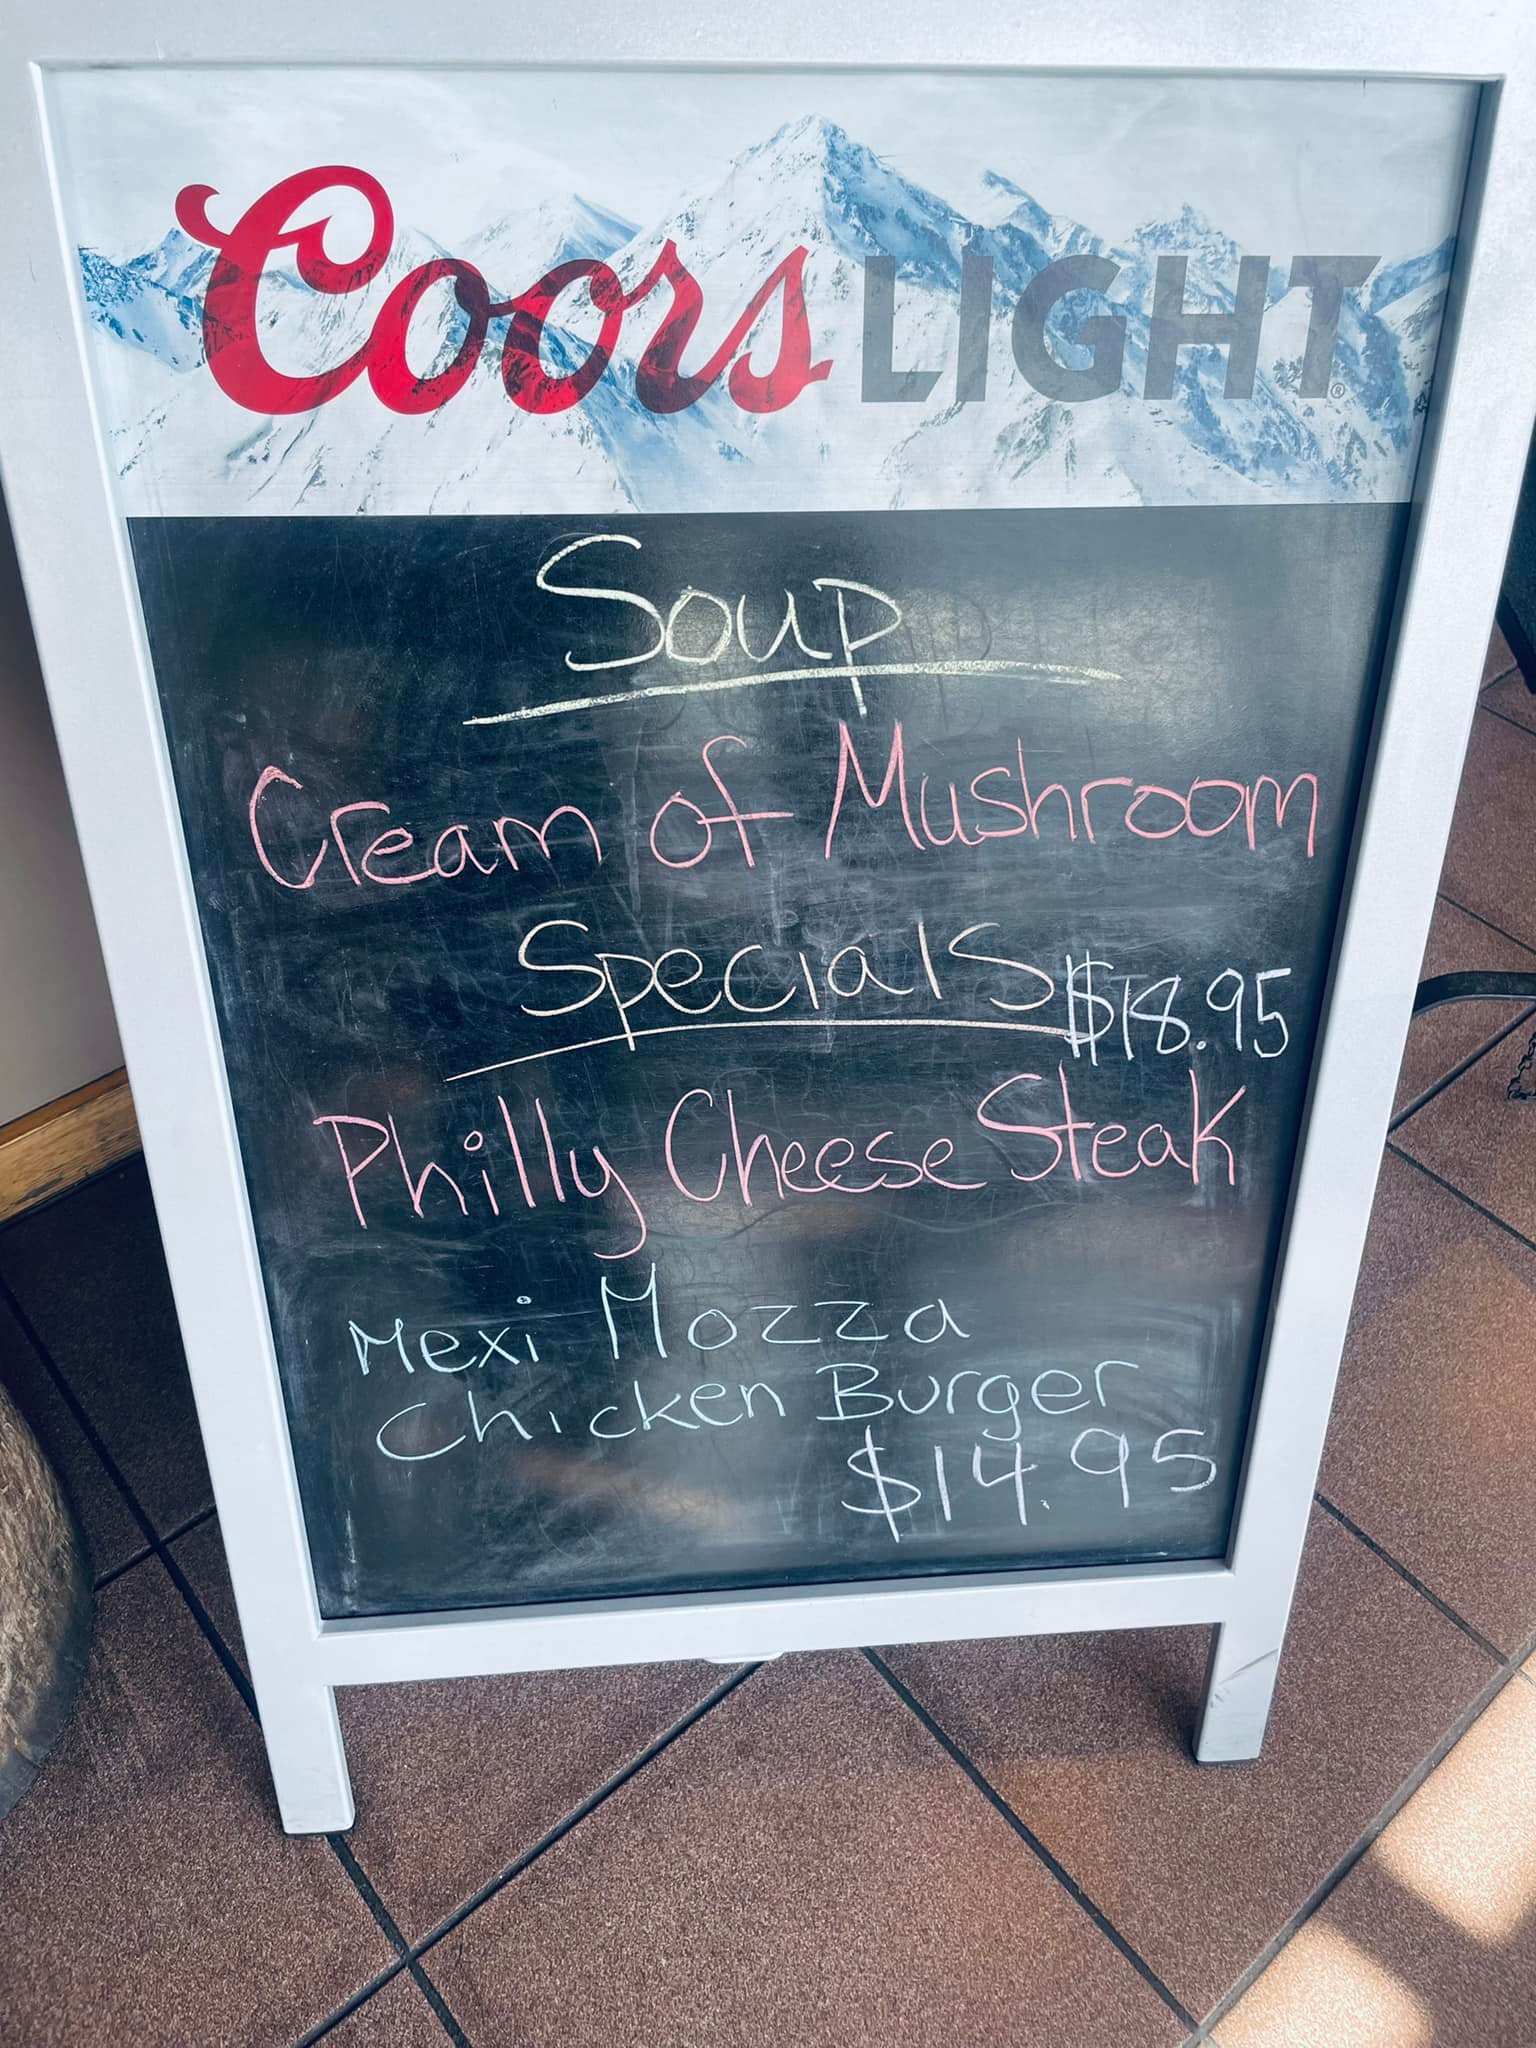 Coors LIGHT®
Soup
Cream of Mushroom
Specials
$18.95
Philly Cheese Steak
Mexi Mozza
Chicken Burger
$14.95